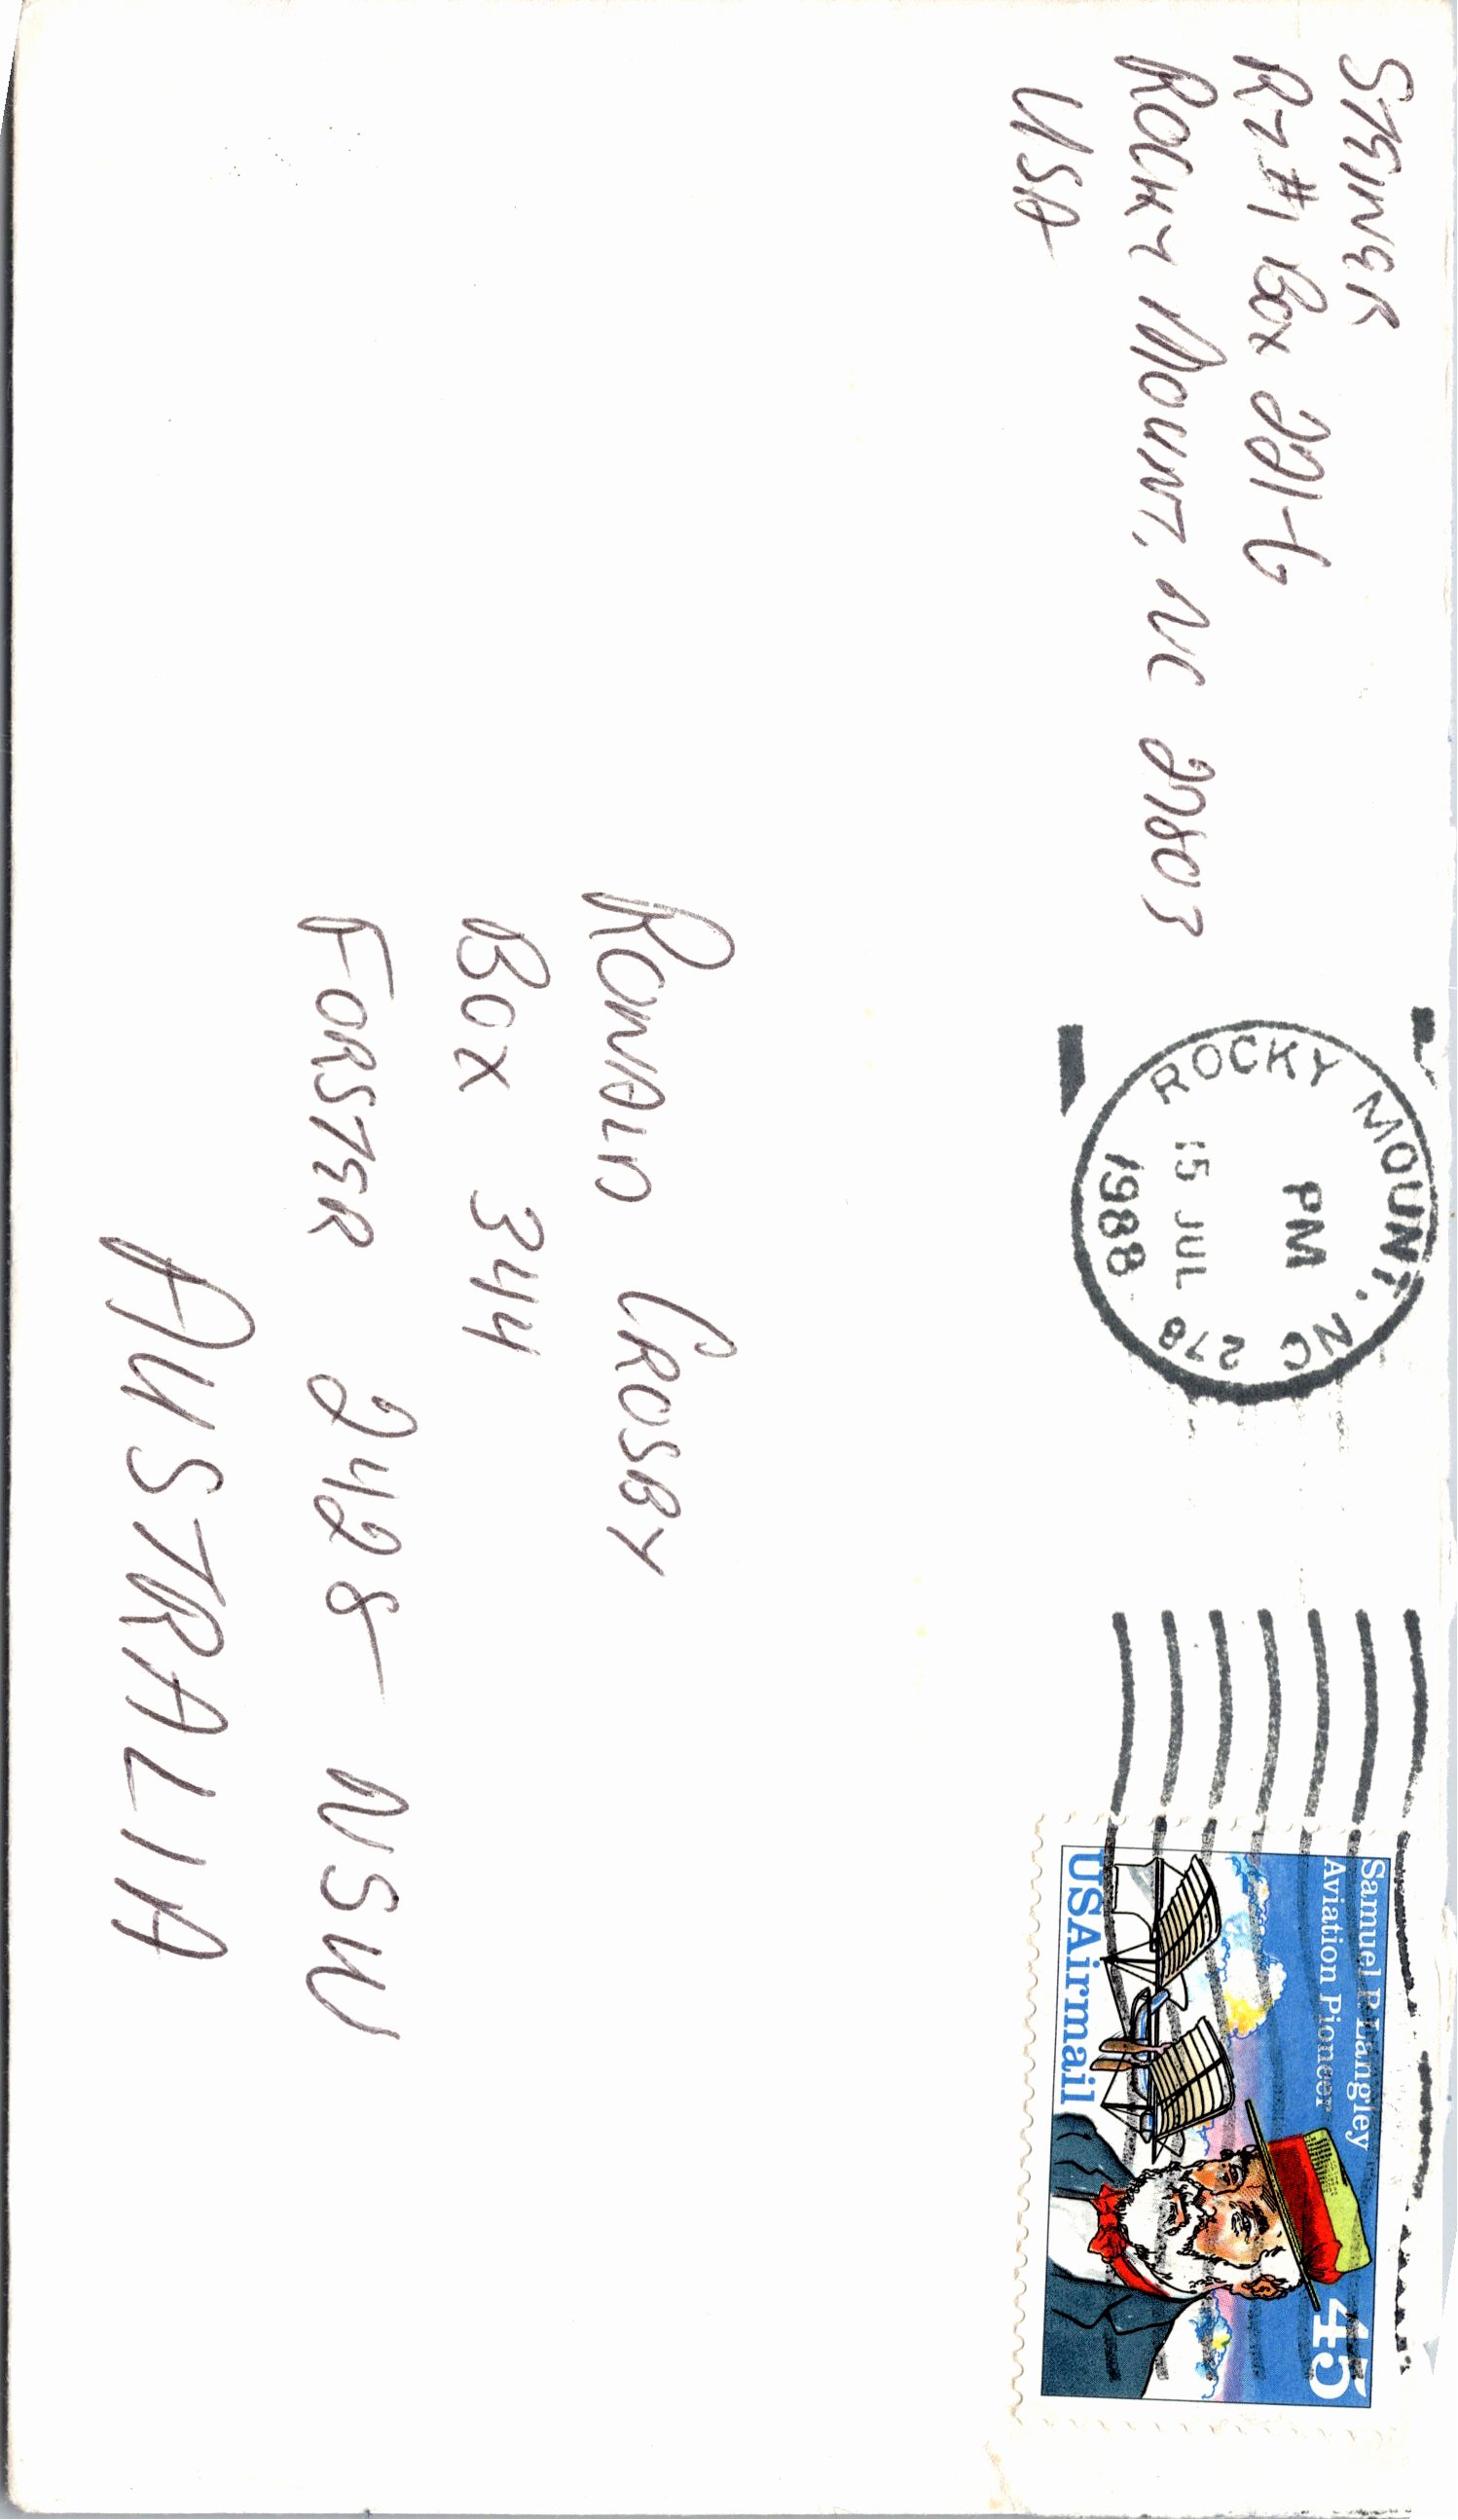 STEINER
RT #1 BOX 221-G
ROCKY MOUNT, NC 27803
USA
ROCKY MOUNT, NC 278
PM
15 JUL
1988
Samuel P. Langley
Aviation Pioneer
45
USAirmail
RONALD CROSBY
BOX 344
FORSTER 2428 NSW
AUSTRALIA